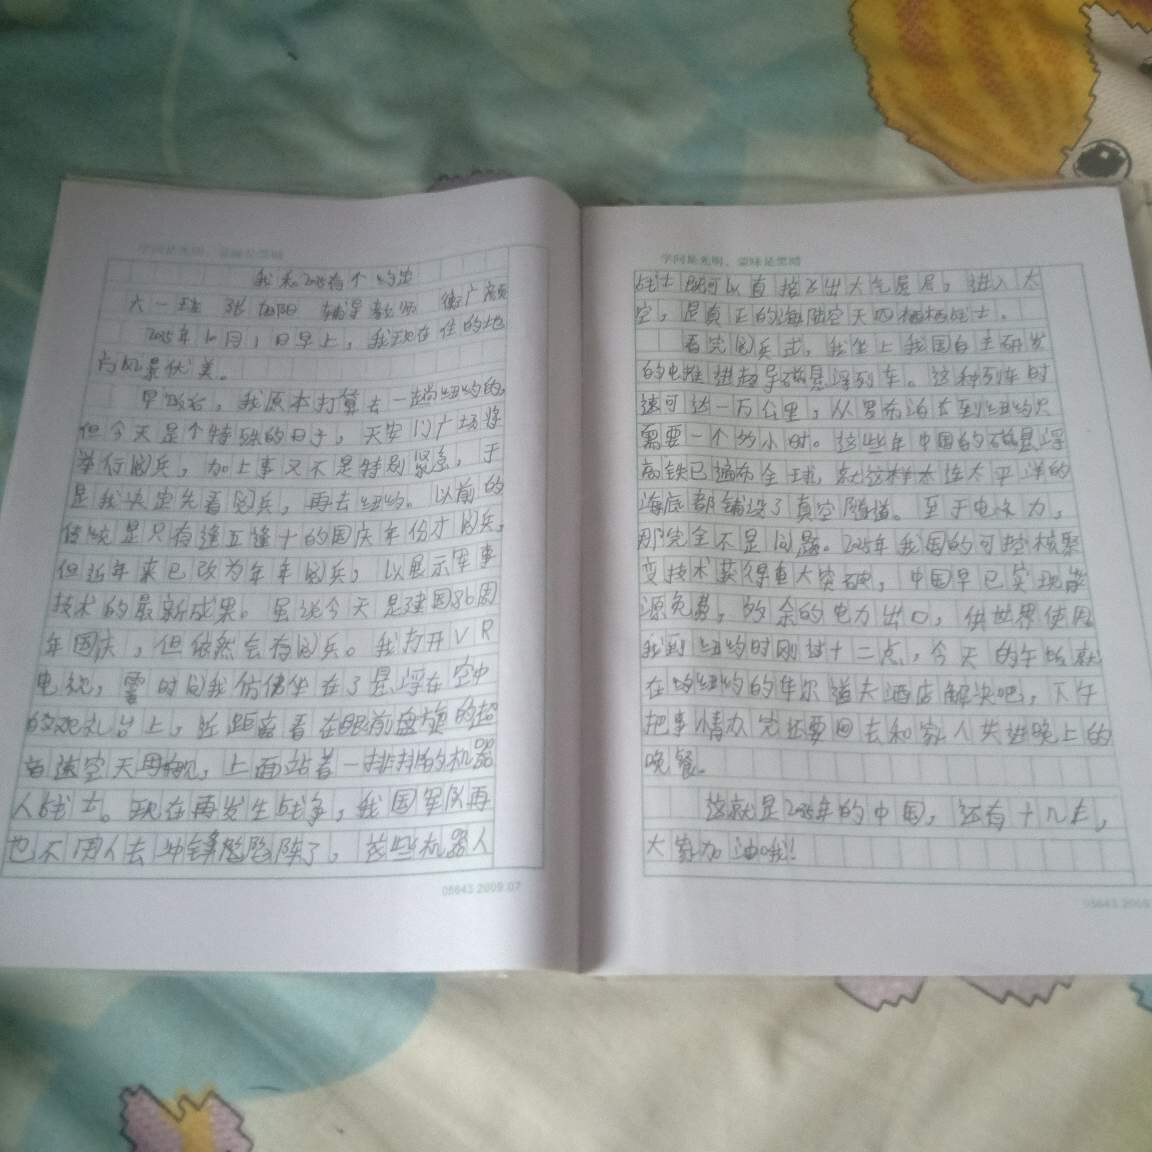 学问是光明，蒙昧是黑暗
我和2035有个约定
六一班 张 阳 辅导教师 衡广
2035年10月1日早上，我现在住的地
方风景优美。
早饭后，我原本打算去一趟纽约的，
但今天是个特殊的日子，天安门广场将
举行阅兵，加上事又不是特别紧急，于
是我决定先看阅兵，再去纽约。以前的
传统是只有逢五逢十的国庆年份才阅兵，
但近年来已改为年年阅兵，以展示军事
技术的最新成果。虽说今天是建国86周
年国庆，但依然会有阅兵。我打开VR
电视，霎时间我仿佛坐在了悬浮在空中
的观礼台上，近距离看在眼前盘旋的超
音速空天母舰，上面站着一排排的机器
人战士。现在再发生战争，我国军队再
也不用人去冲锋陷阵了，这些机器人
05643.2009.07
学问是光明，蒙昧是黑暗
战士既可以直接飞出大气层，进入太
空，是真正的海陆空天四栖战士。
看完阅兵式，我坐上我国自主研发
的电推进超导磁悬浮列车。这种列车时
速可达一万公里，从罗布泊直到纽约只
需要一个多小时。这些年中国的磁悬浮
高铁已遍布全球，就这样连太平洋的
海底都铺设了真空隧道。至于电力，
那完全不是问题。2025年我国的可控核聚
变技术获得重大突破，中国早已实现能
源免费，多余的电力出口，供世界使用
我到纽约时刚过十二点，今天的午饭就
在纽约的华尔道夫酒店解决吧，下午
把事情办完还要回去和家人共进晚上的
晚餐。
这就是2035年的中国，还有十几年，
大家加油哦！
05643.2009